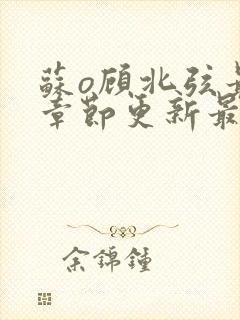 蘇o顾北弦最
章節更新最
余錦鐘